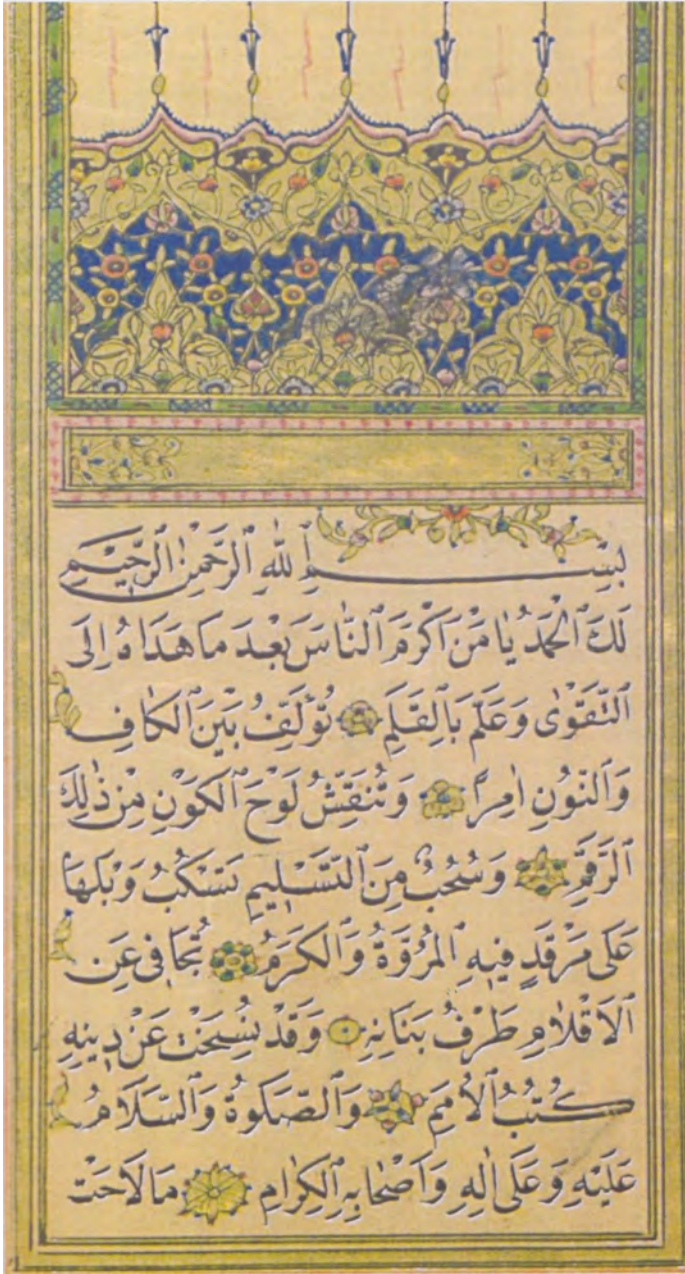 بِسْــــــمِ ٱللّٰهِ ٱلرَّحْمٰنِ ٱلرَّحِيْمِ
لَكَ ٱلْحَمْدُ يَا مَنْ اَكْرَمَ ٱلنَّاسَ بَعْدَ مَا هَدَاهُ اِلَى
ٱلتَّقْوٰى وَعَلَّمَ بَٱلِقَلَمِ تُؤَلِّفُ بَيْنَ ٱلْكَافِ
وَٱلنُّونِ اٰمِرًا وَتُنَقِّشُ لَوْحَ ٱلْكَوْنِ مِنْ ذٰلِكَ
ٱلرَّقَمِ وَسُحْبٌ مِنَ ٱلتَّسْلِيمِ تَسْكُبُ وَبْلَهَا
عَلٰى مَرْقَدٍ فِيهِ ٱلْمُرُوَّةُ وَٱلْكَرَمُ تُجَافٰى عَنِ
ٱلْاَقْلَامِ طَرْفُ بَنَانِهِ وَقَدْ نُسِخَتْ عَنْ دِينِهِ
كُتُبُ ٱلْاُمَمِ وَٱلصَّلٰوةُ وَٱلسَّلَامُ
عَلَيْهِ وَعَلٰى اٰلِهِ وَاَصْحَابِهِ ٱلْكِرَامِ مَا لَاحَتْ